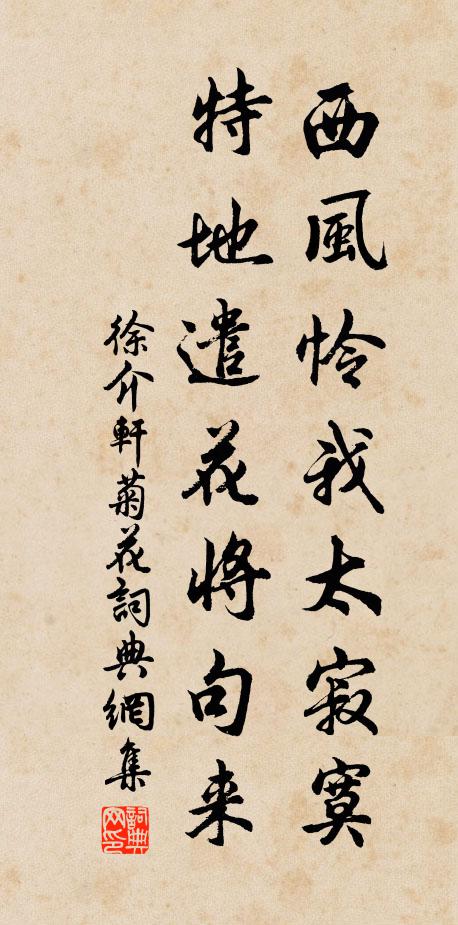 西風怜我太寂寞
特地遣花將句来
徐介軒菊花詞典網集
詞典網印